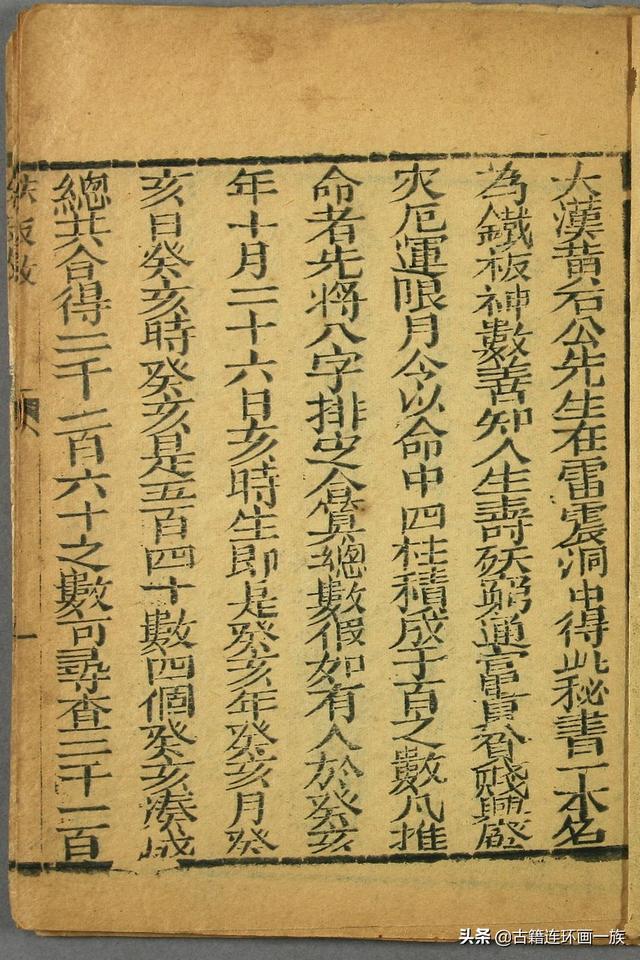 大漢黄石公先生在雷震洞中得此秘書一本名
為鐵板神數善知人生壽殀窮通富貴貧賤興廢
灾厄運限月令以命中四柱積成于百之數凡推
命者先將八字排定合算總數假如有人於癸亥
年十月二十六日亥時生即是癸亥年癸亥月癸
亥日癸亥時癸亥是五百四十數四個癸亥湊成
總共合得二千一百六十之數可尋查二千一百
一
头条 @古籍连环画一族